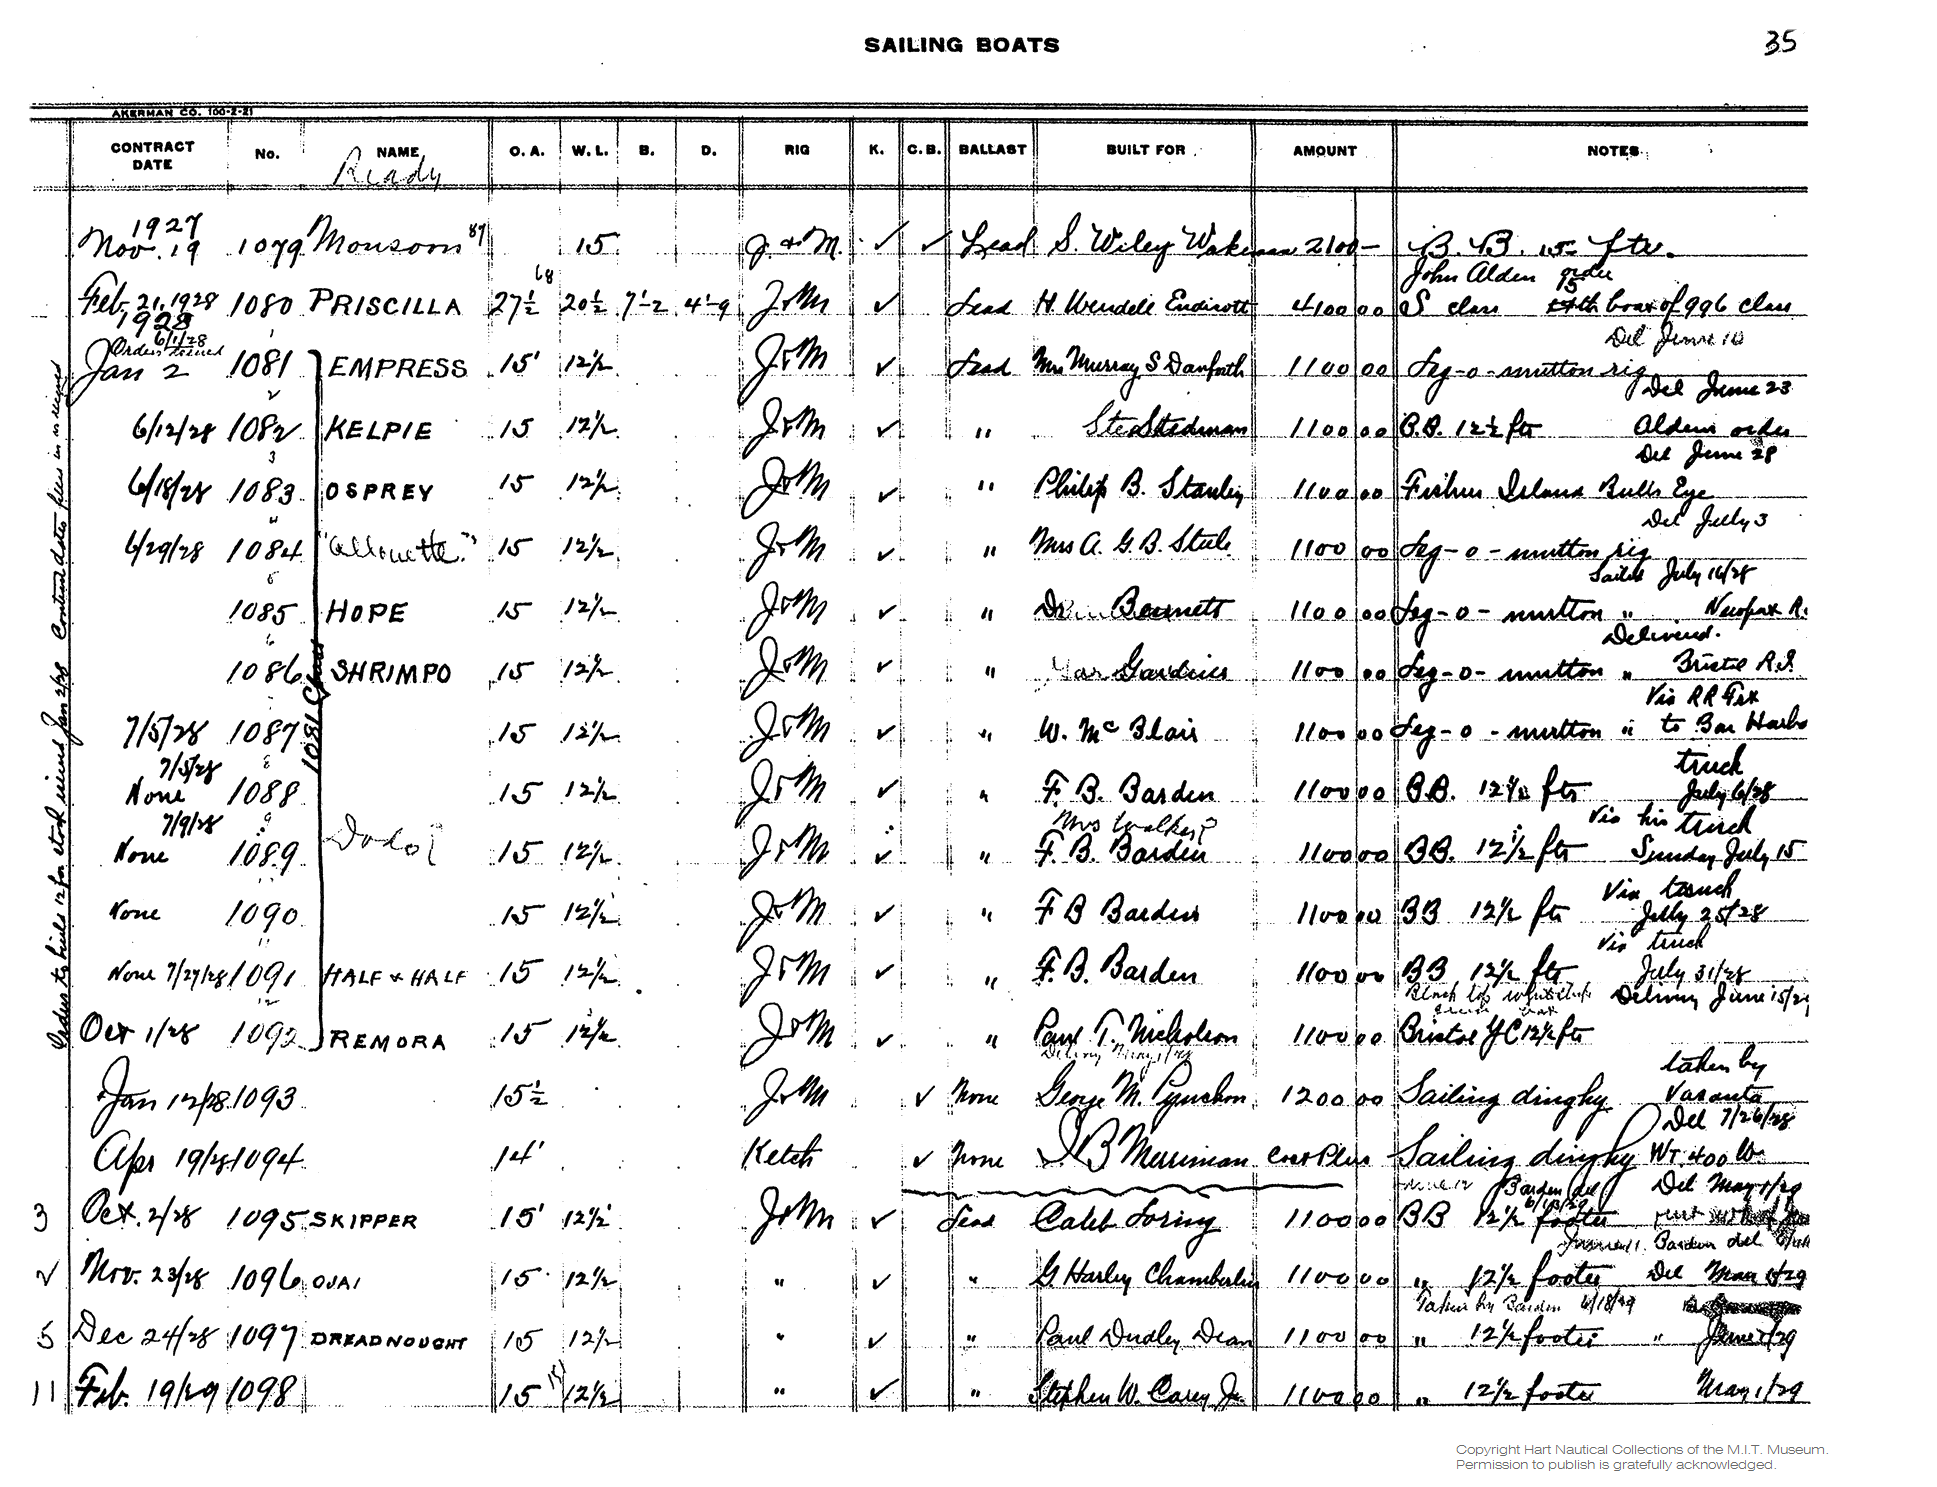 SAILING BOATS 35
AKERMAN CO. 100-2-21
CONTRACT DATE No. NAME O. A. W. L. B. D. RIG K. C. B. BALLAST BUILT FOR AMOUNT NOTES
Ready
1927
Nov. 19 1079 Monsoon 15 J. & M. ✓ ✓ Lead S. Wiley Wakeman 2100- B. B. 15 ftr.
John Alden order
Feb. 21, 1928 1080 PRISCILLA 27½ 20½ 7'-2 4'-9 J & M ✓ Lead H. Wendell Endicott 4100 00 S class 15th boat of 996 class
1928
Del June 10
Orders issued 6/1/28
Jan 2 1081 EMPRESS 15' 12½ J & M ✓ Lead Mrs Murray S Danforth 1100 00 Leg-o-mutton rig
Del June 23
6/12/28 1082 KELPIE 15 12½ J & M ✓ " Stedman 1100 00 B.B. 12½ ftr Alden order
Del June 28
6/18/28 1083 OSPREY 15 12½ J & M ✓ " Philip B. Stanley 1100 00 Fishers Island Bulls Eye
Del July 3
6/29/28 1084 "Allouette" 15 12½ J & M ✓ " Mrs A. G. B. Steel 1100 00 Leg-o-mutton rig
Sailed July 16/28
1085 HOPE 15 12½ J & M ✓ " Dr Bennett 1100 00 Leg-o-mutton " Newport R.
Delivered.
1086 SHRIMPO 15 12½ J & M ✓ " Gardiner 1100 00 Leg-o-mutton " Bristol R.I.
Via RR Frt
7/5/28 1087 15 12½ J & M ✓ " W. McBlair 1100 00 Leg-o-mutton " to Bar Harbo
7/5/28 truck
None 1088 15 12½ J & M ✓ " F. B. Barden 1100 00 B.B. 12½ ftr July 6/28
7/9/28 Mrs Walker? Via his truck
None 1089 Dodo? 15 12½ J & M ✓ " F. B. Barden 1100 00 BB. 12½ ftr Sunday July 15
Via truck
None 1090 15 12½ J & M ✓ " F B Barden 1100 00 BB 12½ ftr July 25/28
Via truck
None 7/27/28 1091 HALF & HALF 15 12½ J & M ✓ " F. B. Barden 1100 00 BB 12½ ftr July 31/28
Black top Delivery June 15/29
Oct 1/28 1092 REMORA 15 12½ J & M ✓ " Paul T. Nicholson 1100 00 Bristol YC 12½ ftr
1081 Class
Orders to build 12 for stock issued Jan 2/28 Contract dates
Delivery May 1/28 taken by
Jan 12/28 1093 15½ J & M ✓ None George M. Pynchon 1200 00 Sailing dinghy Vasanta
Del 7/26/28
Apr 19/28 1094 14' Ketch ✓ None I B Merriman Cost Plus Sailing dinghy WT. 400 lb.
Barden del Del May 1/29
3 Oct. 2/28 1095 SKIPPER 15' 12½' J & M ✓ Lead Caleb Loring 1100 00 BB 12½ footer
June 11. Barden del
2 Nov. 23/28 1096 OUAI 15 12½ " ✓ " G. Harley Chamberlin 1100 00 " 12½ footer Del May 1/29
Taken by Barden 6/18/29
5 Dec 24/28 1097 DREADNOUGHT 15 12½ " ✓ " Paul Dudley Dean 1100 00 " 12½ footer " June 1/29
11 Feb. 19/29 1098 15 12½ " ✓ " Stephen W. Carey Jr. 1100 00 " 12½ footer May 1/29
Copyright Hart Nautical Collections of the M.I.T. Museum.
Permission to publish is gratefully acknowledged.